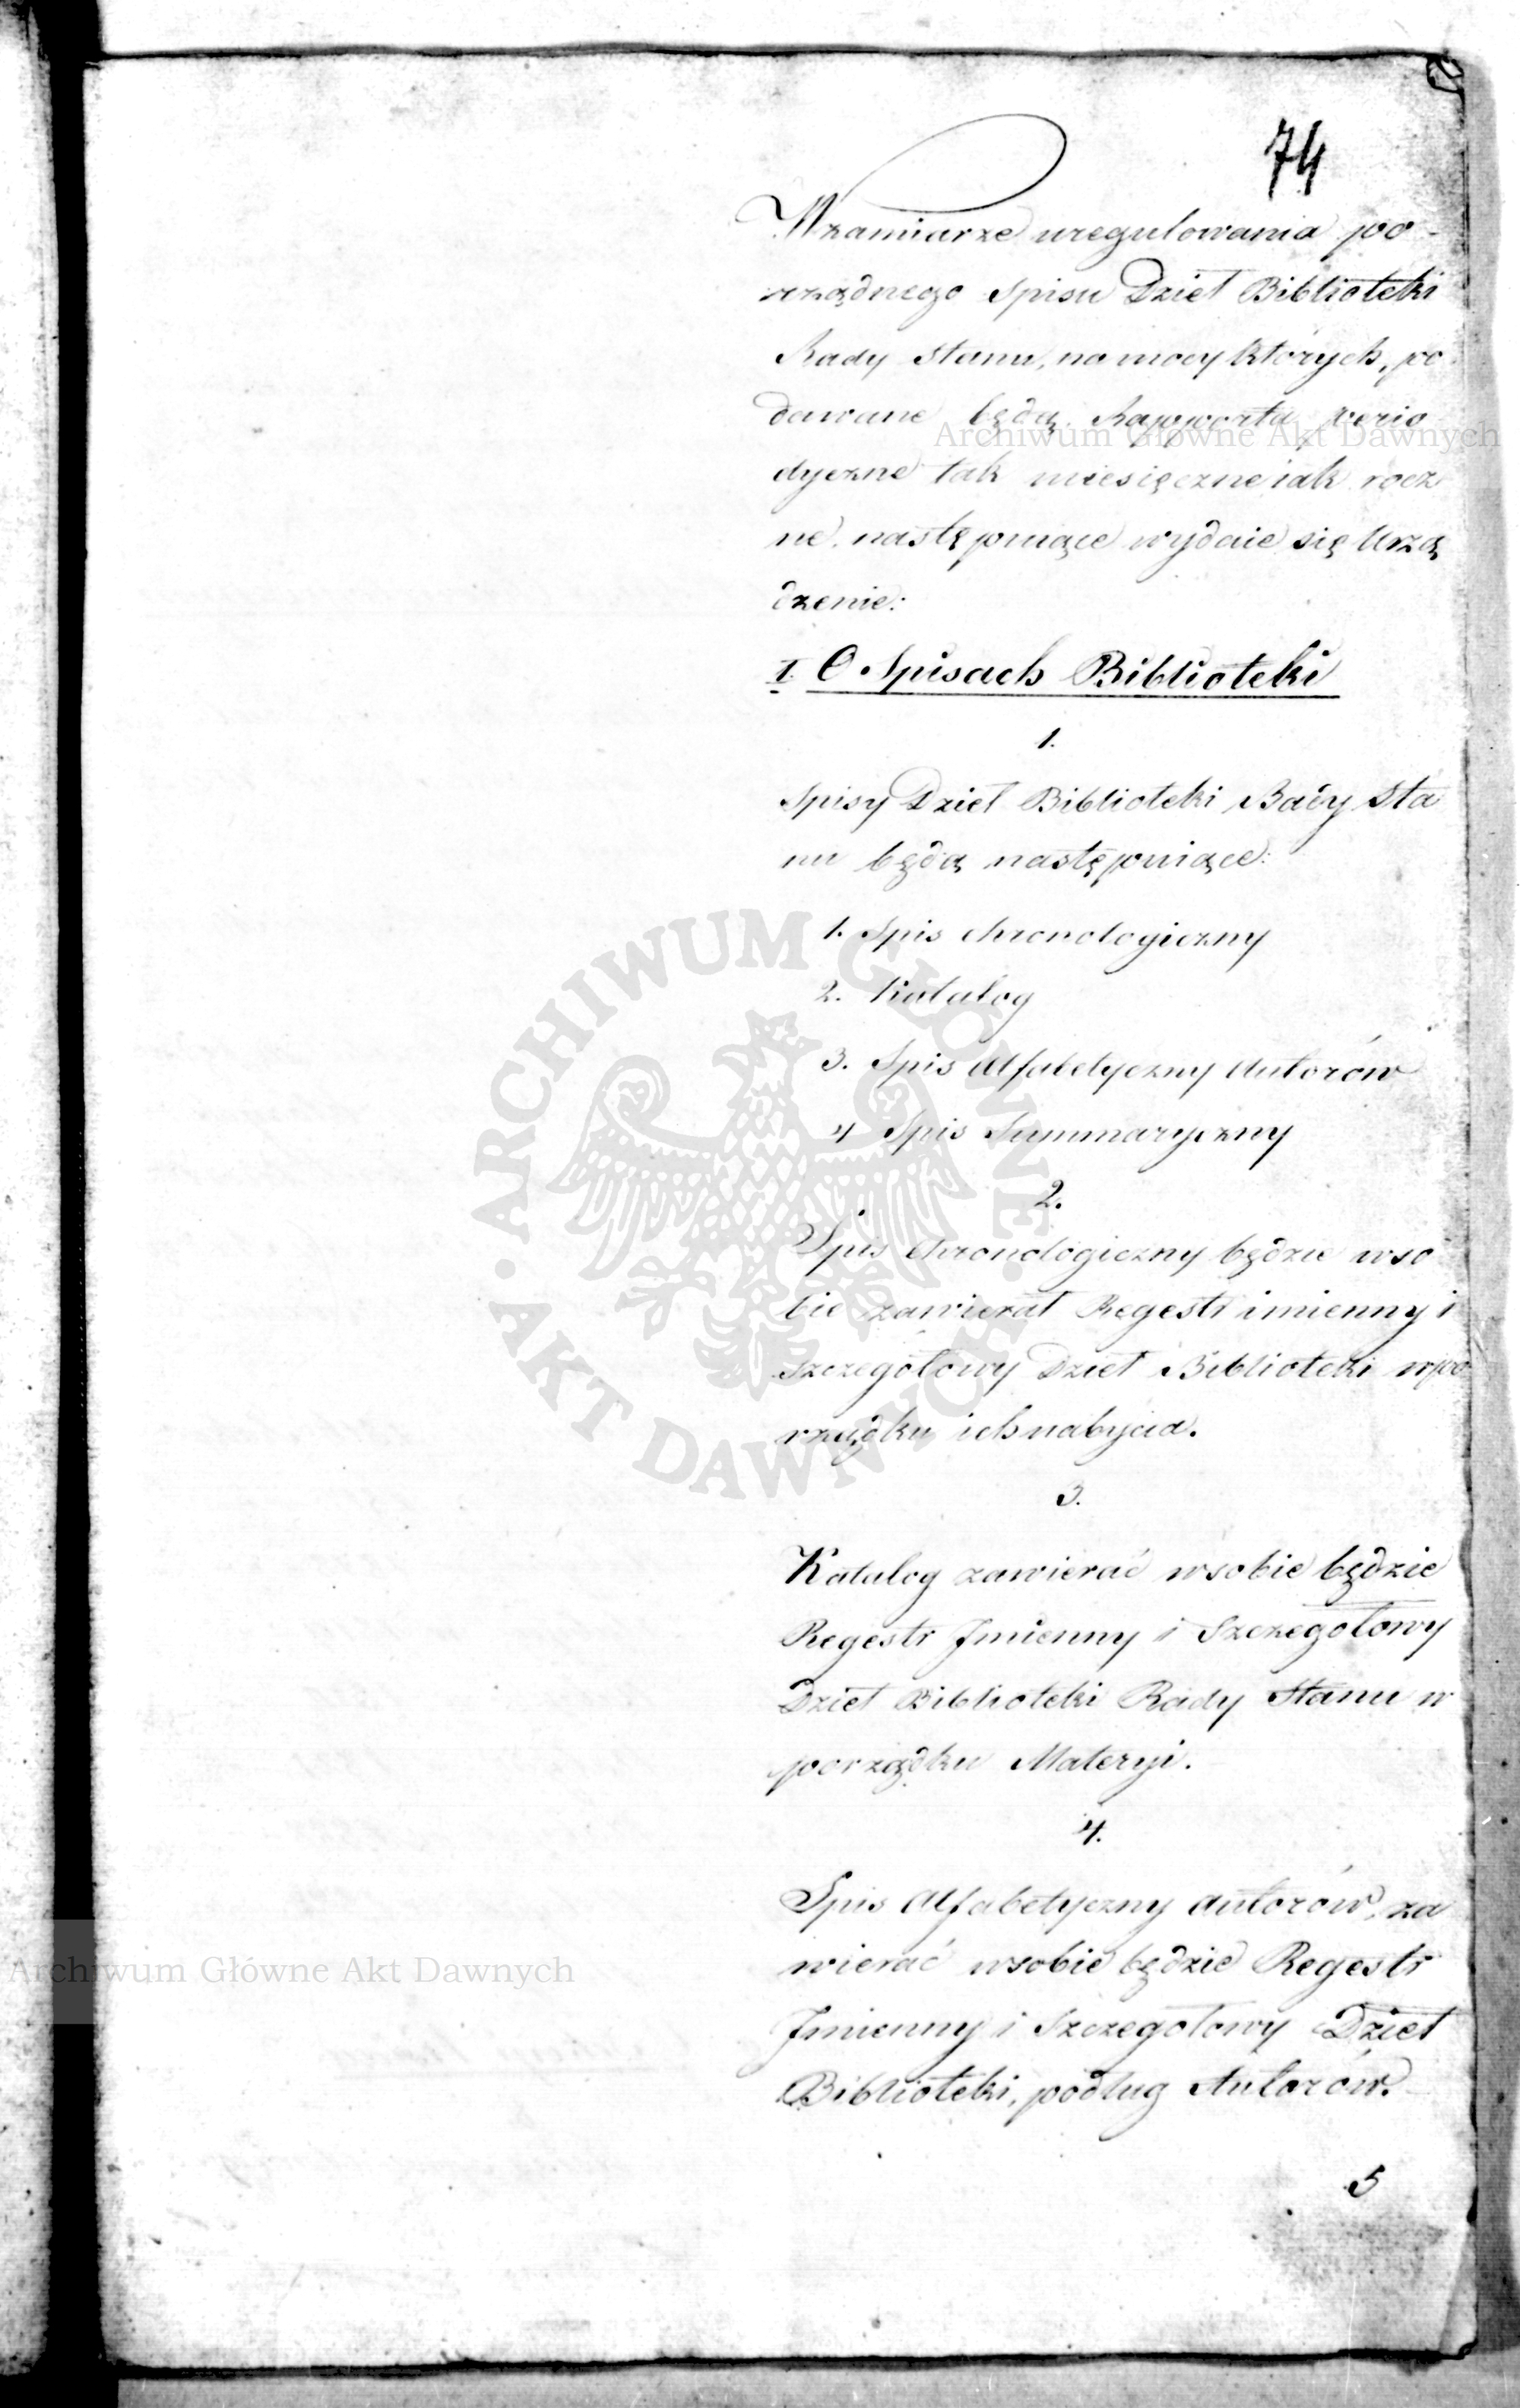 74
W zamiarze uregulowania po-
rządnego Spisu Dzieł Biblioteki
Rady Stanu, na mocy których, po
dawane będą Rapporta perio
dyczne tak miesięczne iak rocz
ne, następuiące wydaie się Urzą
dzenie:
I. O Spisach Biblioteki
1.
Spisy Dzieł Biblioteki Rady Sta
nu będą następuiące:
1. Spis chronologiczny
2. Katalog
3. Spis Alfabetyczny Autorów
4 Spis Summaryczny
2.
Spis chronologiczny będzie wso
bie zawierał Regestr imienny i
szczegółowy Dzieł Biblioteki w po
rządku ich nabycia.
3.
Katalog zawierać w sobie będzie
Regestr Jmienny i Szczegołowy
Dzieł Biblioteki Rady Stanu w
porządku Materyi.
4.
Spis Alfabetyczny Autorów, za
wierać w sobie będzie Regestr
Jmienny i Szczegołowy Dzieł
Biblioteki, podług Autorów.
5
Archiwum Główne Akt Dawnych
ARCHIWUM GŁÓWNE AKT DAWNYCH
Archiwum Główne Akt Dawnych